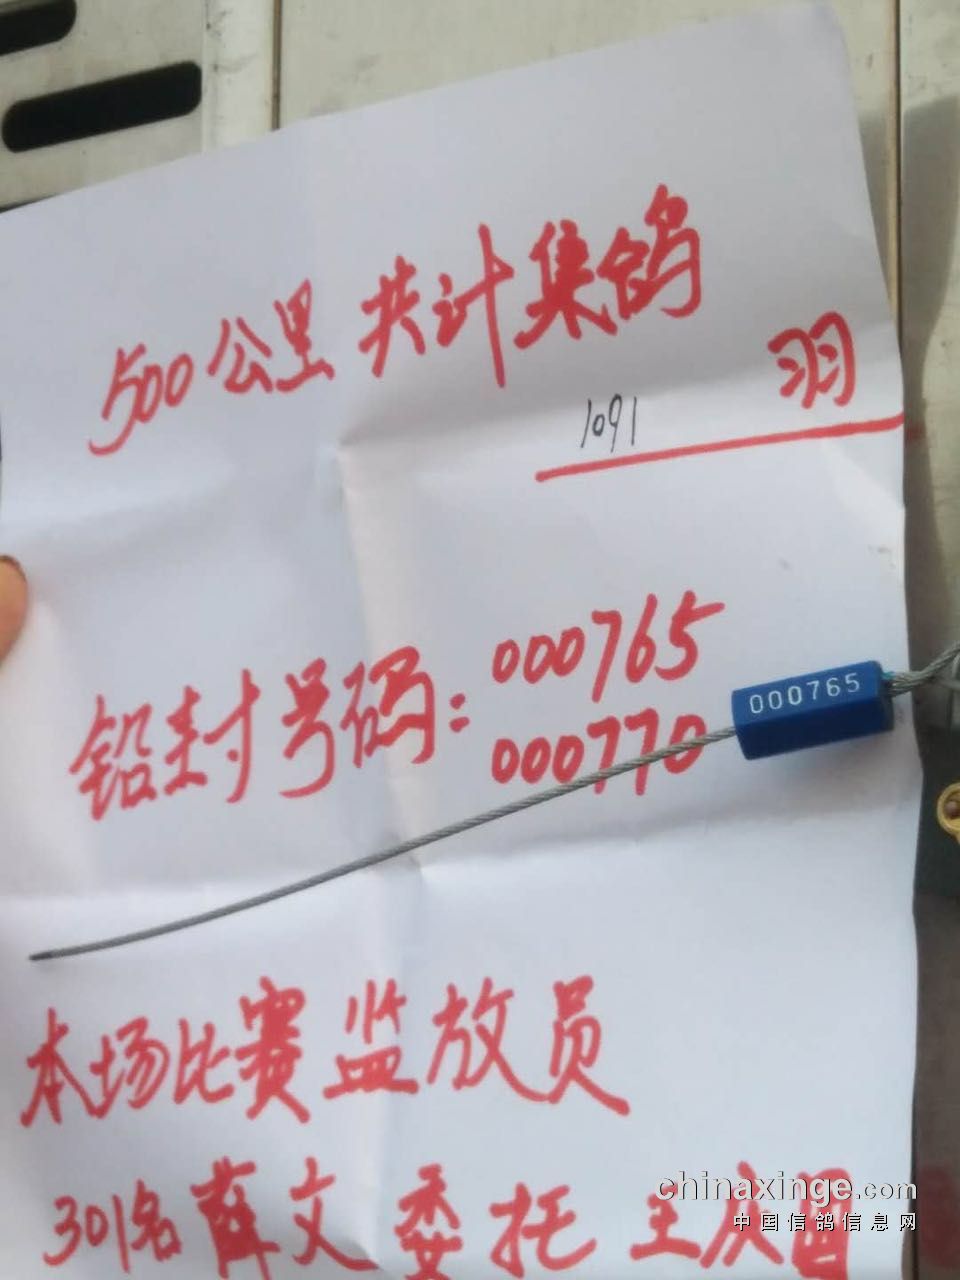 500公里 共计集鸽
1091 羽
铅封号码: 000765
000770
000765
本场比赛监放员
301名薛文委托王庆
chinaxinge.com
中国信鸽信息网